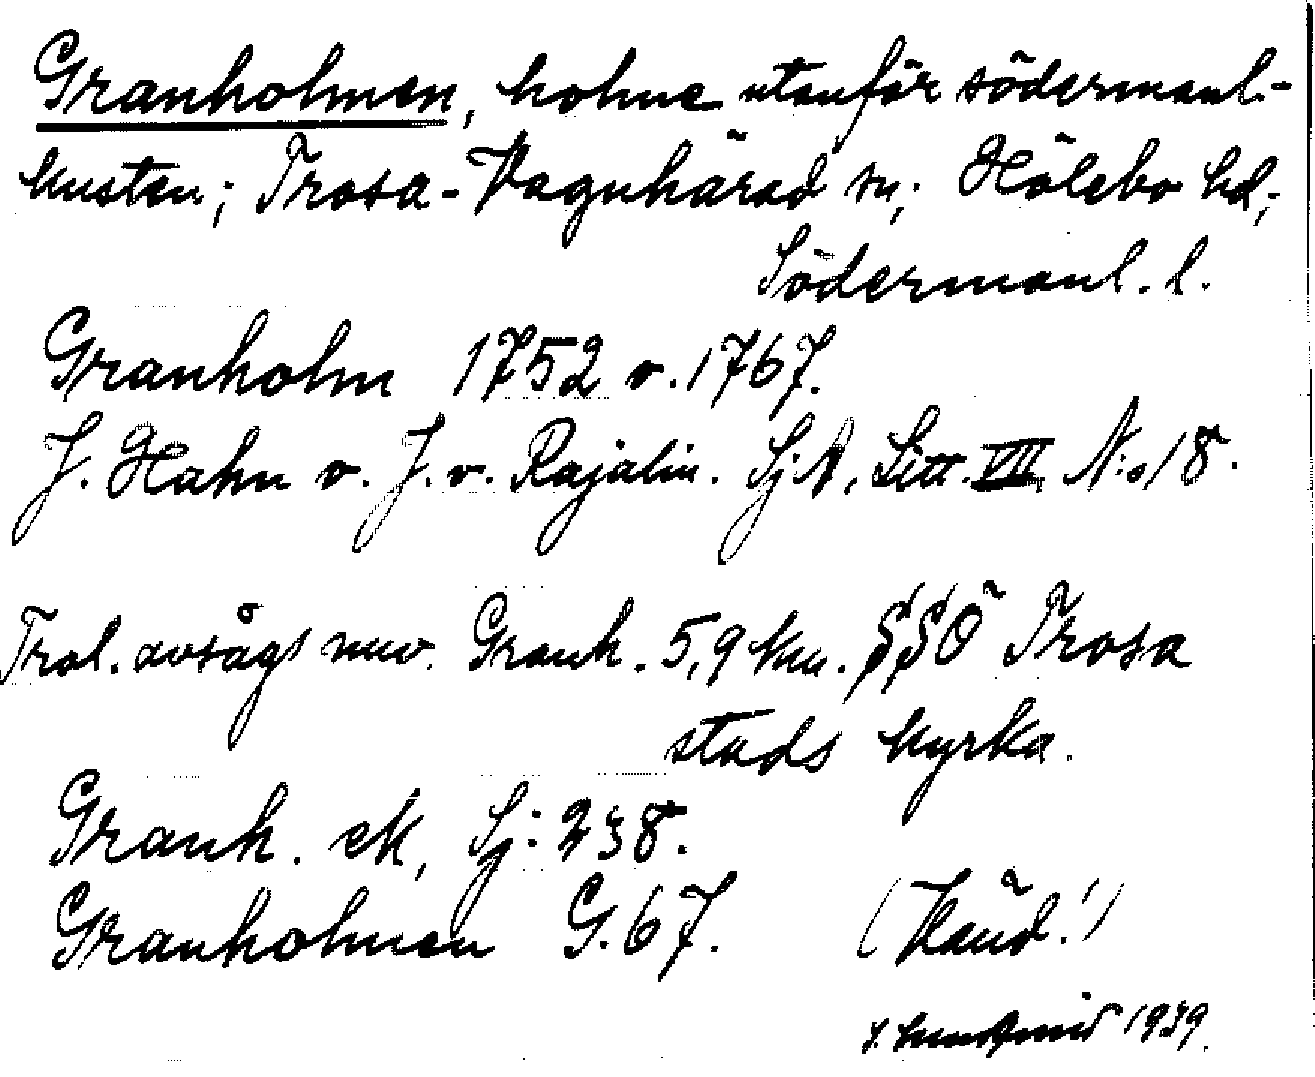 Granholmen, holme utanför södermanl.-
kusten; Trosa-Vagnhärad sn; Hölebo hd;
Södermanl. l.
Granholm 1752 o. 1767.
J. Hahn o. J. v. Rajalin. Sj A, Litt. VII, N:o 18.
Trol. avsågs nuv. Granh. 5,9 km. SSÖ Trosa
stads kyrka.
Granh. ek, Sj: 238.
Granholmen G. 67. (Händ!)
1939.